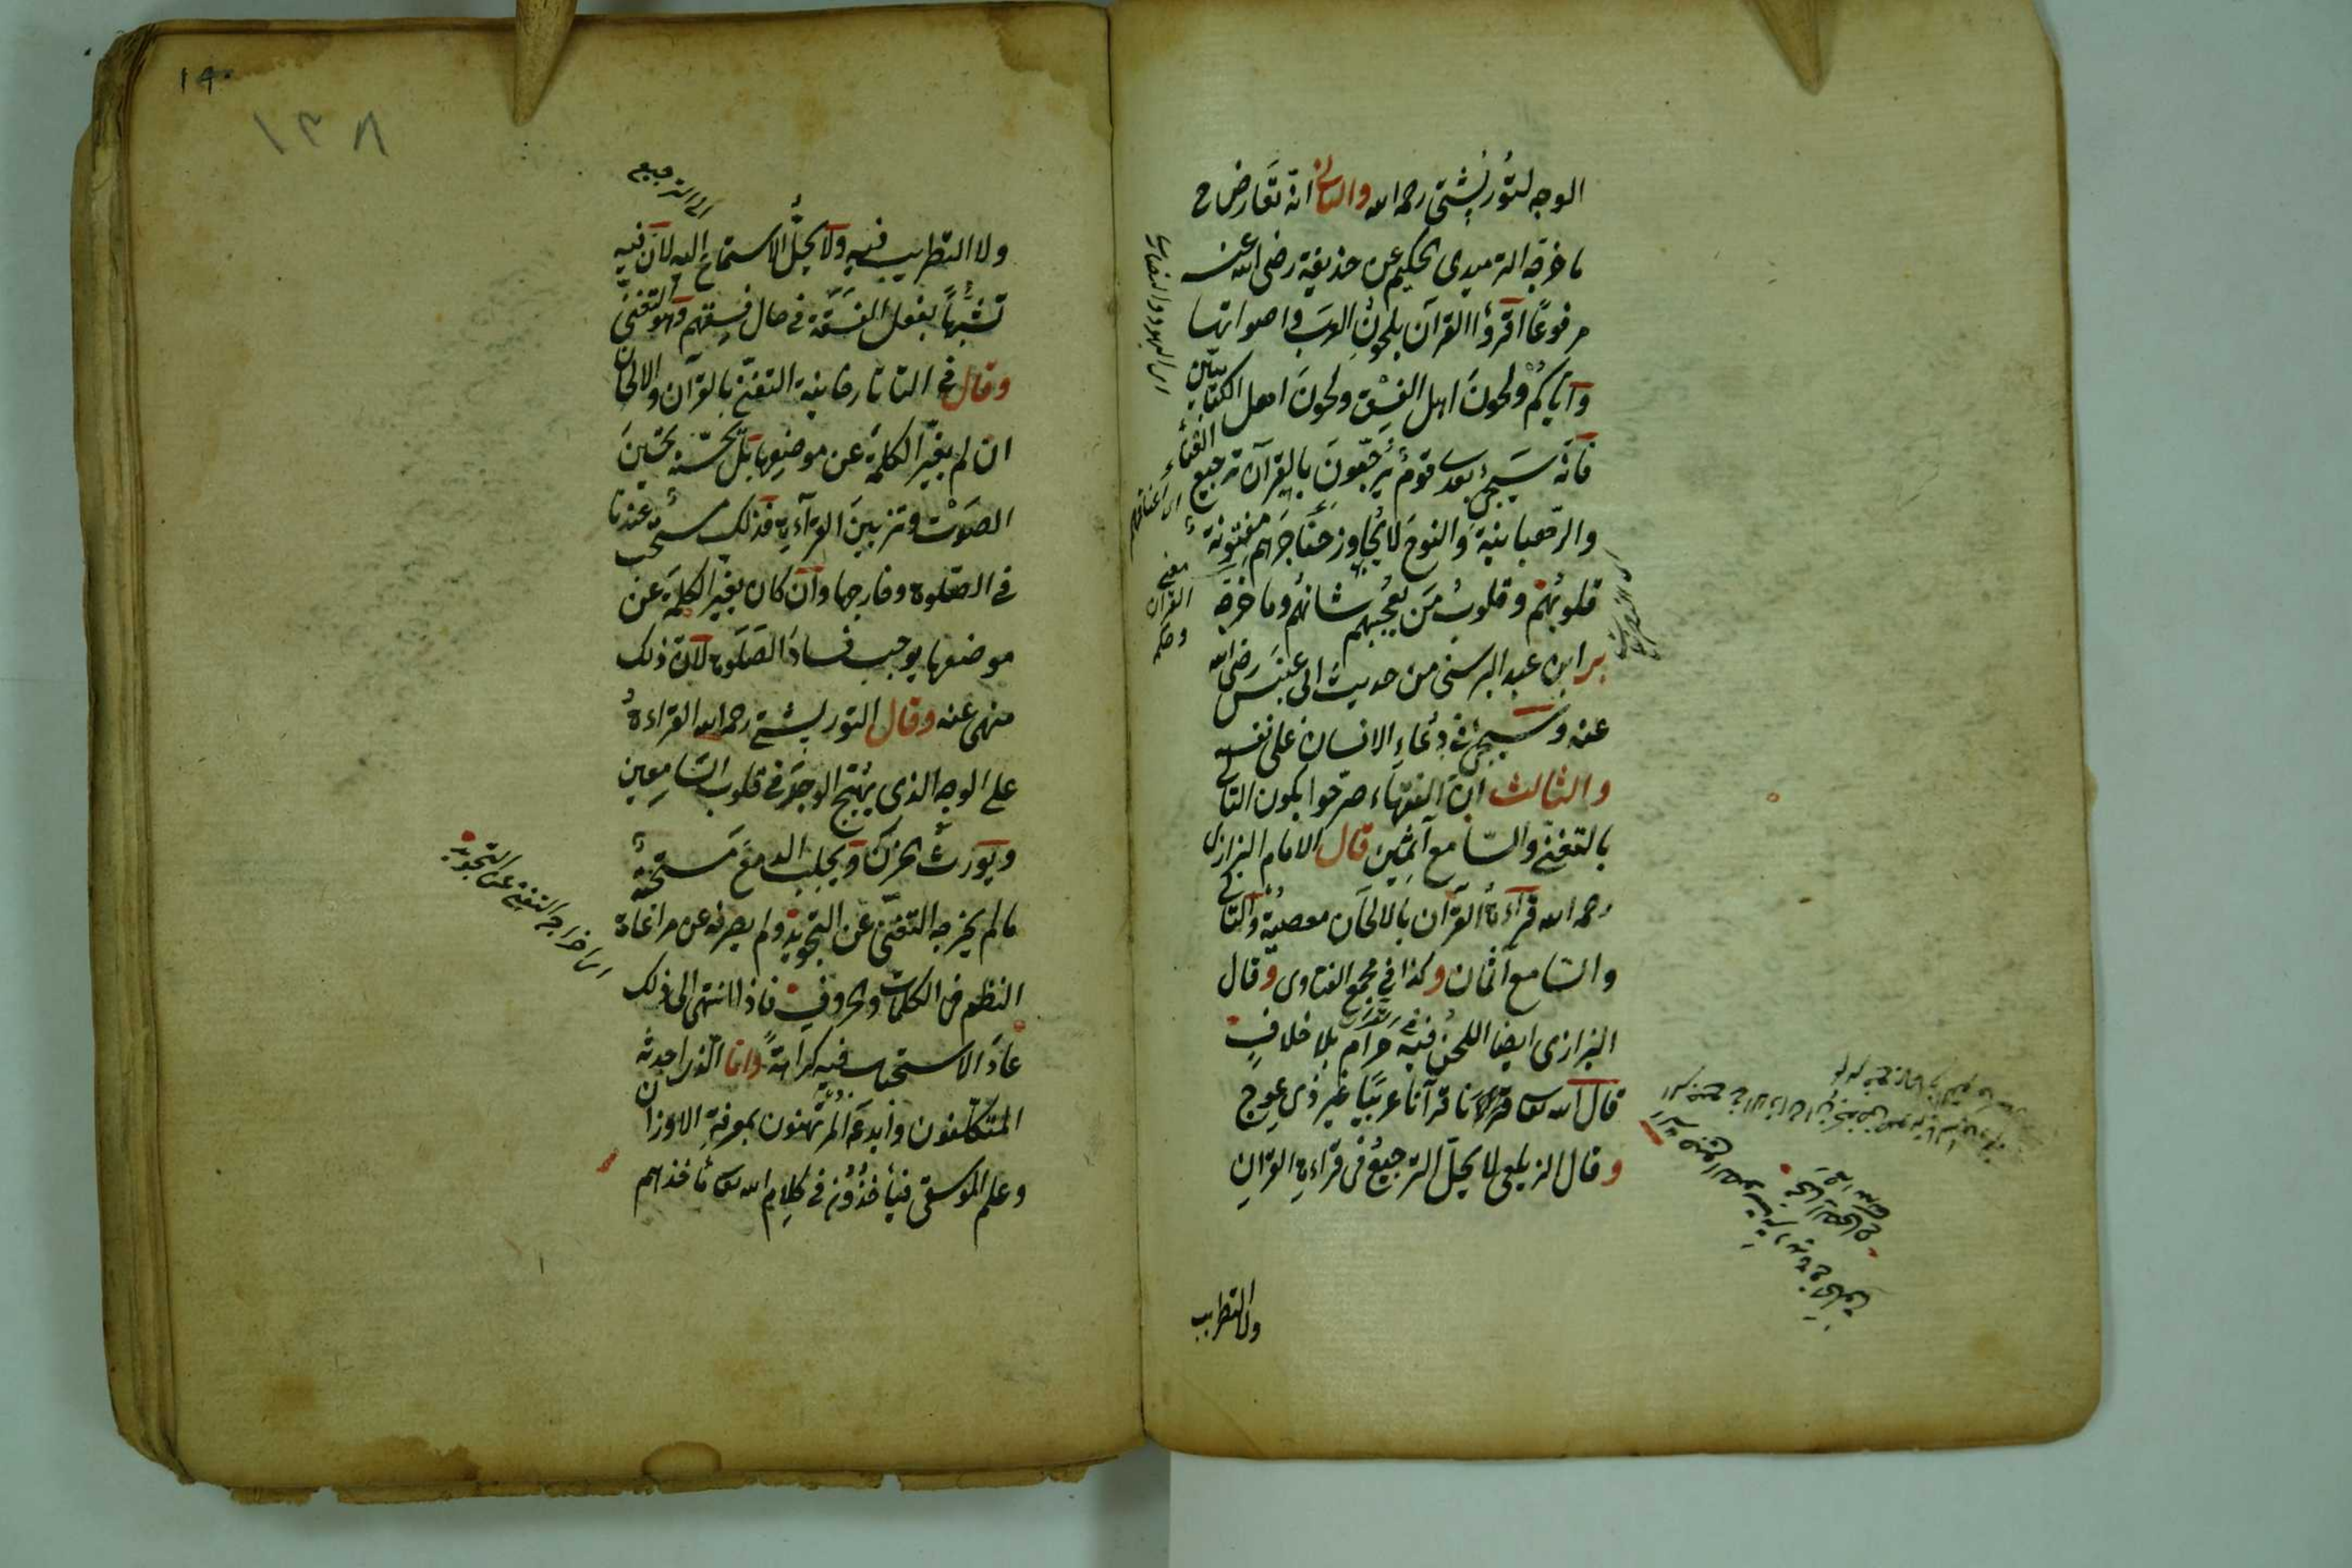 الوجه لتوربشتي رحمه الله والثاني انه تعارض ح
ما خرجه الترميدى الحكيم عن حذيفة رضى الله عنه
مرفوعًا اقرؤا القرآن بلحون العرب واصواتها
واياكم ولحون اهل الفسق ولحون اهل الكتابين
فانه سيجئ بعدى قوم يرجعون بالقرآن ترجيع الغناء
والرهبانية والنوح لا يجاوز حناجرهم مفتونة
قلوبهم وقلوب من يعجبهم شانهم وما خرجه
بر ابن عبد البر من حديث ابى عنبس رضى الله
عنه وسيجئ فى دعاء الانسان على نفسه
والثالث ان الفقهاء صرحوا بكون التالى
بالتغنى والسامع آثمين قال الامام البزازى
رحمه الله قرآءة القرآن بالالحان معصية والتالى
والسامع آثمان وكذا فى مجمع الفتاوى وقال
البزازى ايضا اللحن فيه حرام بلا خلاف
قال الله تعا قرآنا عربيا غير ذى عوج
وقال الزيلعى لا يحل الترجيع فى قرآءة القرآن
ولا التطريب
اى اليهود والنصارى
معنى
القرآن
وحكمه
١٤٠
١٣٨
اى الترجيع
ولا التطريب فيه ولا يحل الاستماع اليه لان فيه
تشبها بفعل الفسقة فى حال فسقهم وهو التغنى
وقال فى التاتارخانية التغنى بالقرآن والالحان
ان لم يغير الكلمة عن موضعها بل تحسنه تحسين
الصوت وتزيين القرآءة فذلك مستحب عندنا
فى الصلوة وخارجها وان كان يغير الكلمة عن
موضعها يوجب فساد الصلوة لان ذلك
منهى عنه وقال التوربشتى رحمه الله القراءة
على الوجه الذى يهيج الوجد فى قلوب السامعين
ويورث الحزن ويجلب الدمع مستحبة
ما لم يخرجه التغنى عن التجويد ولم يصرفه عن مراعاة
النظم فى الكلمات والحروف فاذا انتهى الى ذلك
عاد الاستحباب فيه كراهة واما الذى احدثه
المتكلفون وابدعه المرتهنون بمعرفة الاوزان
وعلم الموسقى فيأخذون فى كلام الله تعا مأخذهم
اى اخراج التغنى عن التجويد